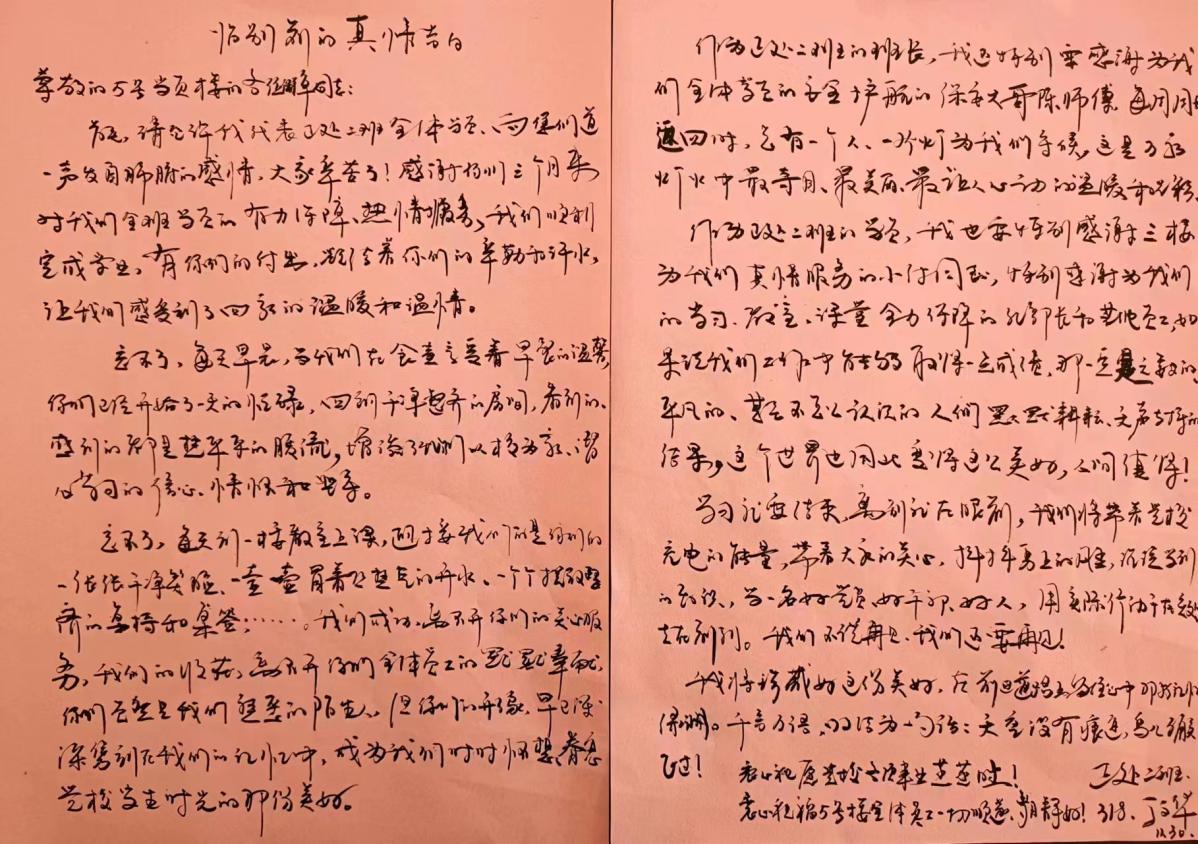 临别前的真情告白
尊敬的5号学员楼的各位同志:
首先,请允许我代表正处二班全体学员、向您们道
一声发自肺腑的感情,大家辛苦了!感谢你们三个月来
对我们全班学员的有力保障、热情服务,我们顺利
完成学业,有你们的付出,凝结着你们的辛勤和汗水,
让我们感受到了回家的温暖和温情。
忘不了,每天早晨,当我们在食堂享受着早餐的温馨,
你们已经开始了一天的忙碌,回到干净整齐的房间,看到的、
感到的都是热乎乎的暖流,增添了我们以校为家、潜
心学习的信心、情怀和
忘不了,每天到一楼教室上课,迎接我们的是你们的
一张张干净笑脸、一壶壶冒着热气的开水、一个个摆放整
齐的桌椅和桌签;……。我们成功,离不开你们的关心服
务,我们的收获,离不开你们全体员工的默默奉献,
你们虽然是我们熟悉的陌生人,但你们的形象,早已深
深镌刻在我们的记忆中,成为我们时时怀想、眷恋
党校学生时光的那份美好。
作为正处二班的班长,我还特别要感谢为我
们全体学员的安全护航的保安大哥陈师傅,每周周
返回时,总有一个人、一个灯为我们守候,这是万家
灯火中最夺目、最美丽、最让人心动的温暖和光彩。
作为正处二班的学员,我也要特别感谢三楼
为我们真情服务的小付同志,特别感谢为我们
的学习、教室、课堂全力保障的孔部长和其他员工,如
果说我们工作中能够取得一定成绩,那一定是无数的
平凡的、甚至不怎么认识的人们默默耕耘、无声支持的
结果,这个世界也因此变得这么美好,人间值得!
学习就要结束,离别就在眼前,我们将带着党校
充电的能量,带着大家的关心,抖抖身上的风尘,沿途学到
的知识,当一名好党员、好干部、好人,用实际行动
我们不说再见,我们还要再见!
我将珍藏好这份美好,在前进道路上
千言万语,归结为一句话:天空没有痕迹,鸟儿已飞
过!
衷心祝愿党校各项事业蒸蒸日上! 正处二班
衷心祝福5号楼全体员工一切顺遂、静好!318、丁文华
11.30.